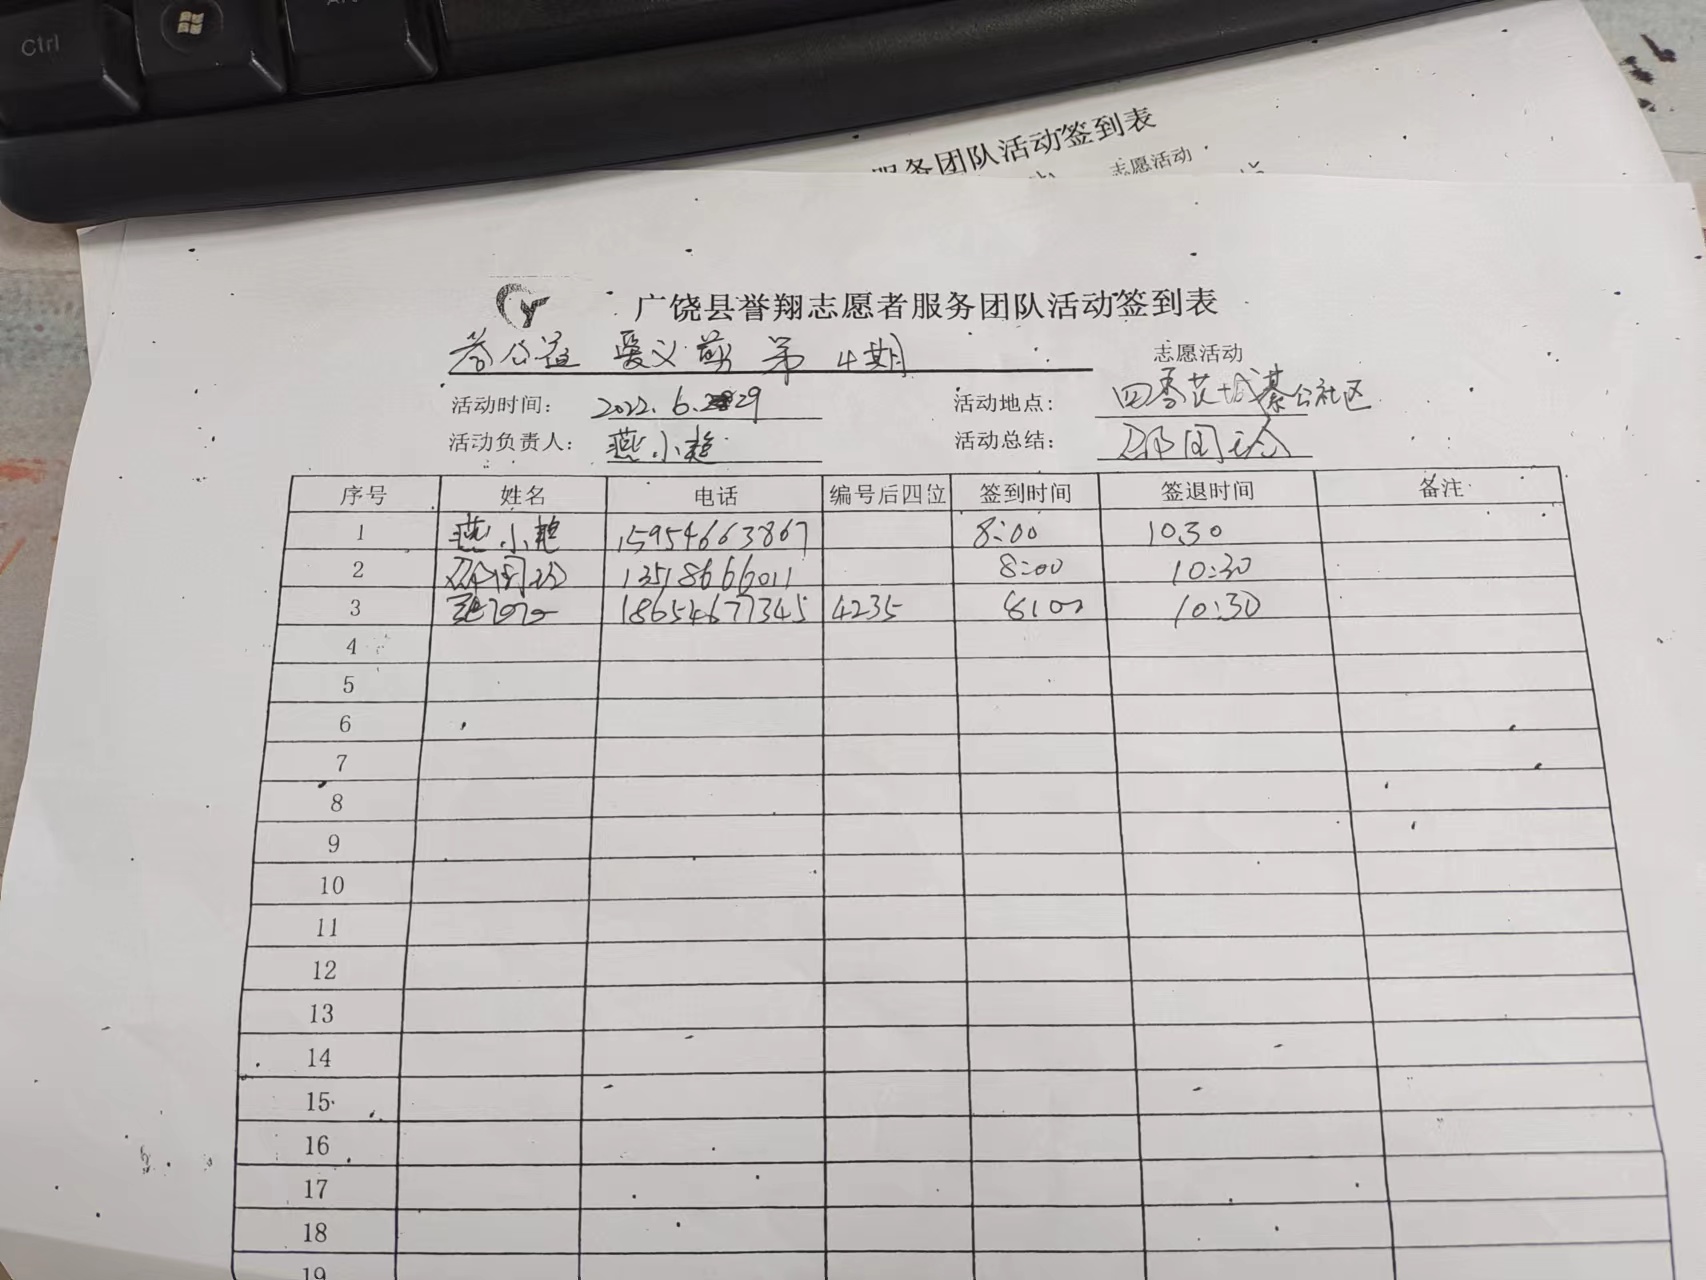 Ctrl
服务团队活动签到表
志愿活动
广饶县誉翔志愿者服务团队活动签到表
善公益 爱义剪 第 4期 志愿活动
活动时间: 2022.6.29 活动地点: 四季花城綦公社区
活动负责人: 燕小艳 活动总结:
序号 姓名 电话 编号后四位 签到时间 签退时间 备注
1 燕小艳 15954663867 8:00 10:30
2 13518666011 8:00 10:30
3 18654677345 4235 8:00 10:30
4
5
6
7
8
9
10
11
12
13
14
15
16
17
18
19